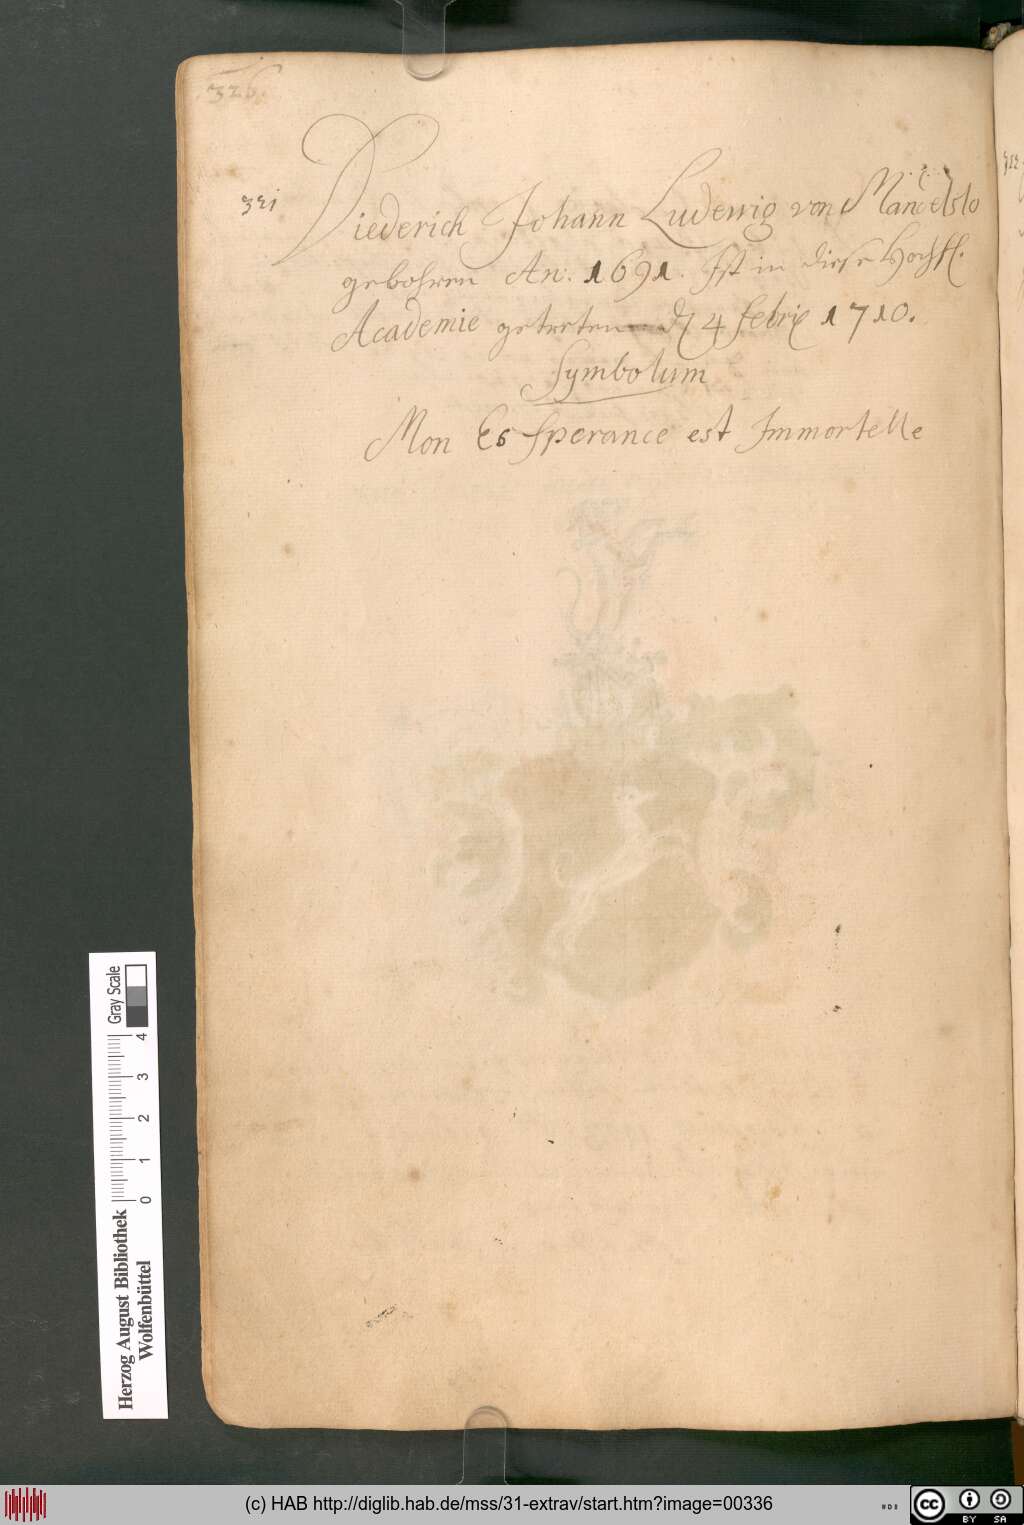 326.
321
Diederich Johann Ludewig von Mandelslo
gebohren An: 1691. Ist in diese Hochfl.
Academie getreten d 4 febrij 1710.
Symbolum
Mon Es sperance est Immortelle
Herzog August Bibliothek
Wolfenbüttel
0 1 2 3 4
Gray Scale
(c) HAB http://diglib.hab.de/mss/31-extrav/start.htm?image=00336
WDB
cc BY SA